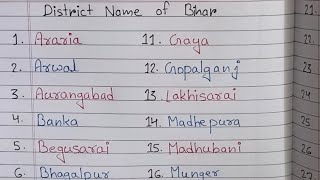 District Name of Bihar
1. Araria 11. Gaya
2. Arwal 12. Gopalganj
3. Aurangabad 13. Lakhisarai
4. Banka 14. Madhepura
5. Begusarai 15. Madhubani
6. Bhagalpur 16. Munger
21.
22
23
24
25
26
27